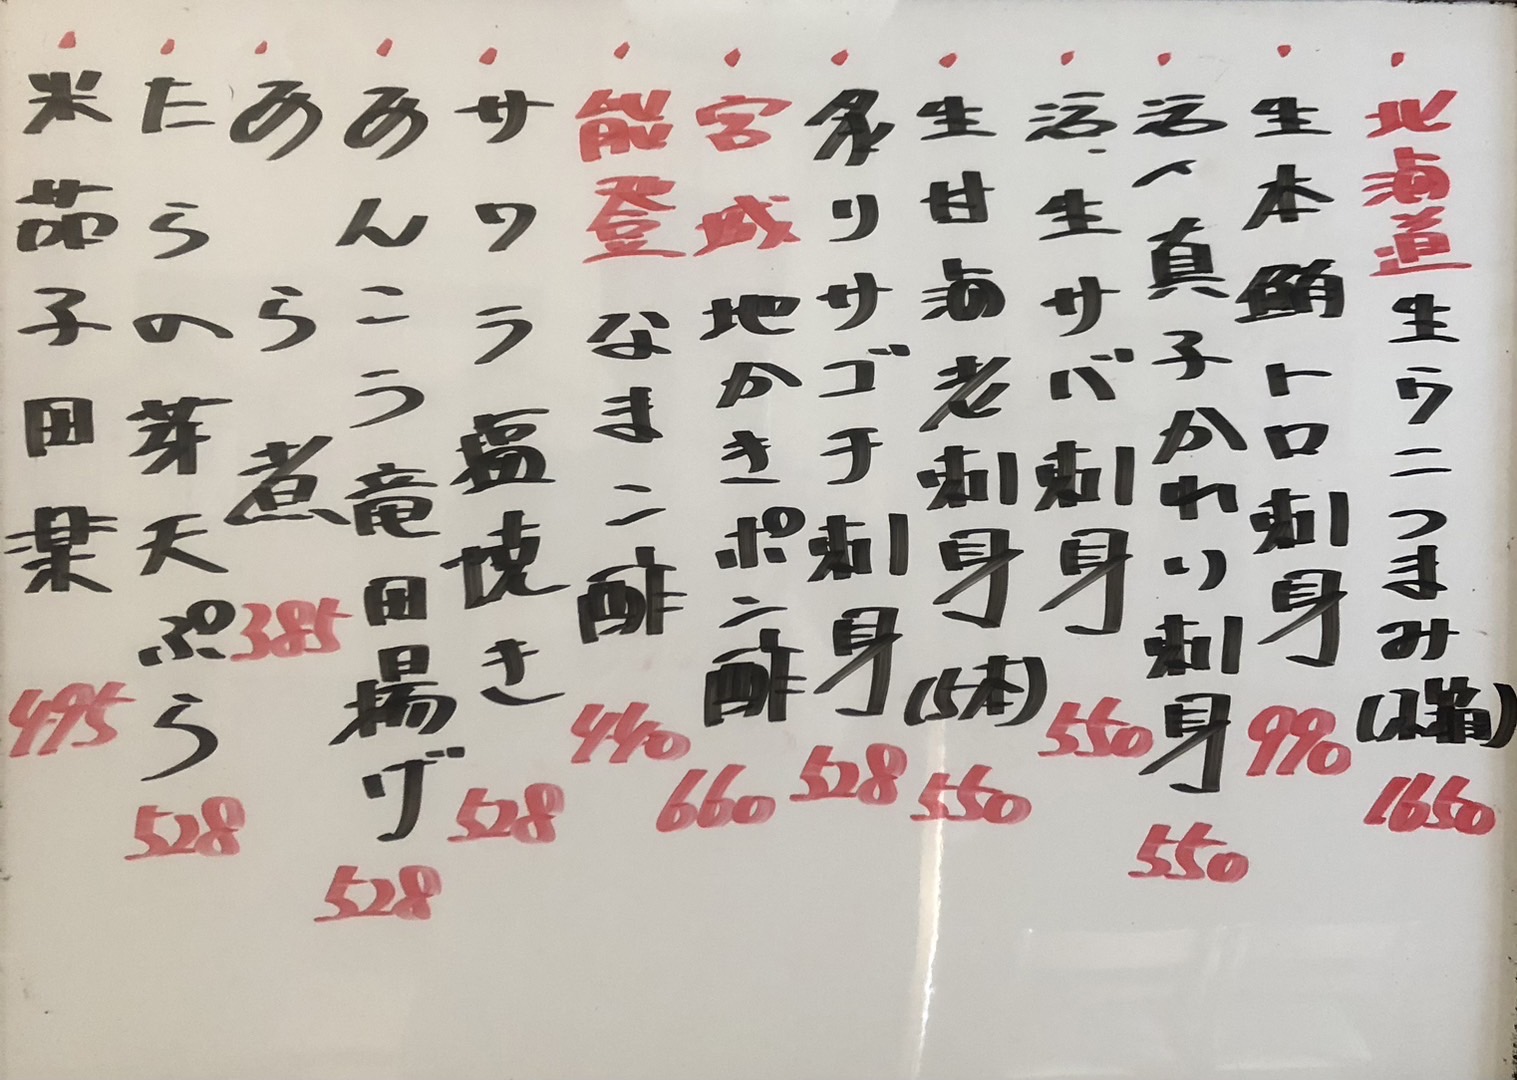 北海道生ウニつまみ(1箱)1650
生本鮪トロ刺身990
活〆真子かれい刺身550
活〆生サバ刺身550
生甘海老刺身(5本)550
炙りサゴチ刺身528
宮城地かきポン酢660
能登なまこ酢440
サワラ塩焼き528
あんこう竜田揚げ528
あら煮385
たらの芽天ぷら528
米茄子田楽495